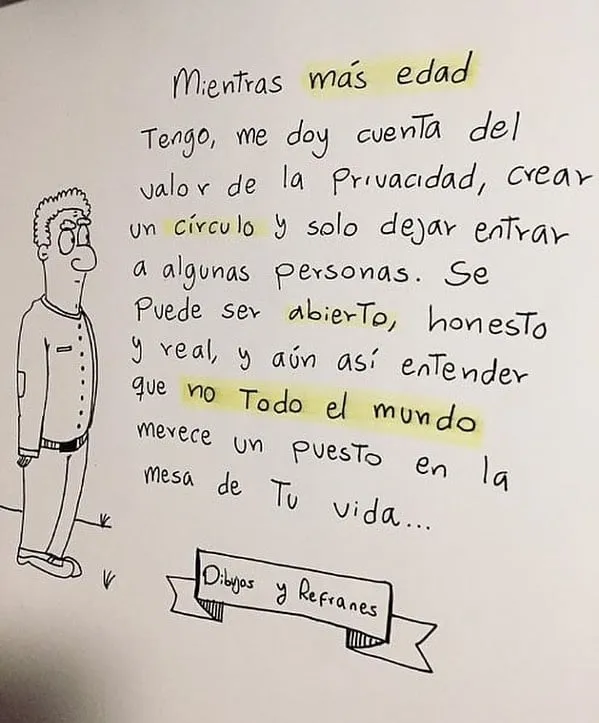 Mientras más edad
Tengo, me doy cuenta del
valor de la Privacidad, crear
un círculo y solo dejar entrar
a algunas personas. Se
Puede ser abierto, honesto
y real, y aún así entender
que no Todo el mundo
merece un puesto en la
mesa de Tu vida...
Dibujos y Refranes